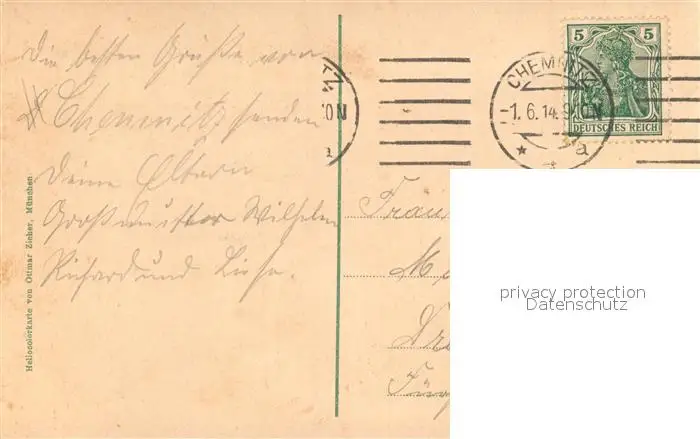 Die besten Grüße von
Chemnitz senden
Deine Eltern
Großmutter Wilhelm
Richard und Liese.
Heliocolorkarte von Ottmar Zieher, München
TZ
0N
a
CHEMNITZ
-1.6.14.9-10N
* a
5 5
DEUTSCHES REICH
Frau
privacy protection
Datenschutz